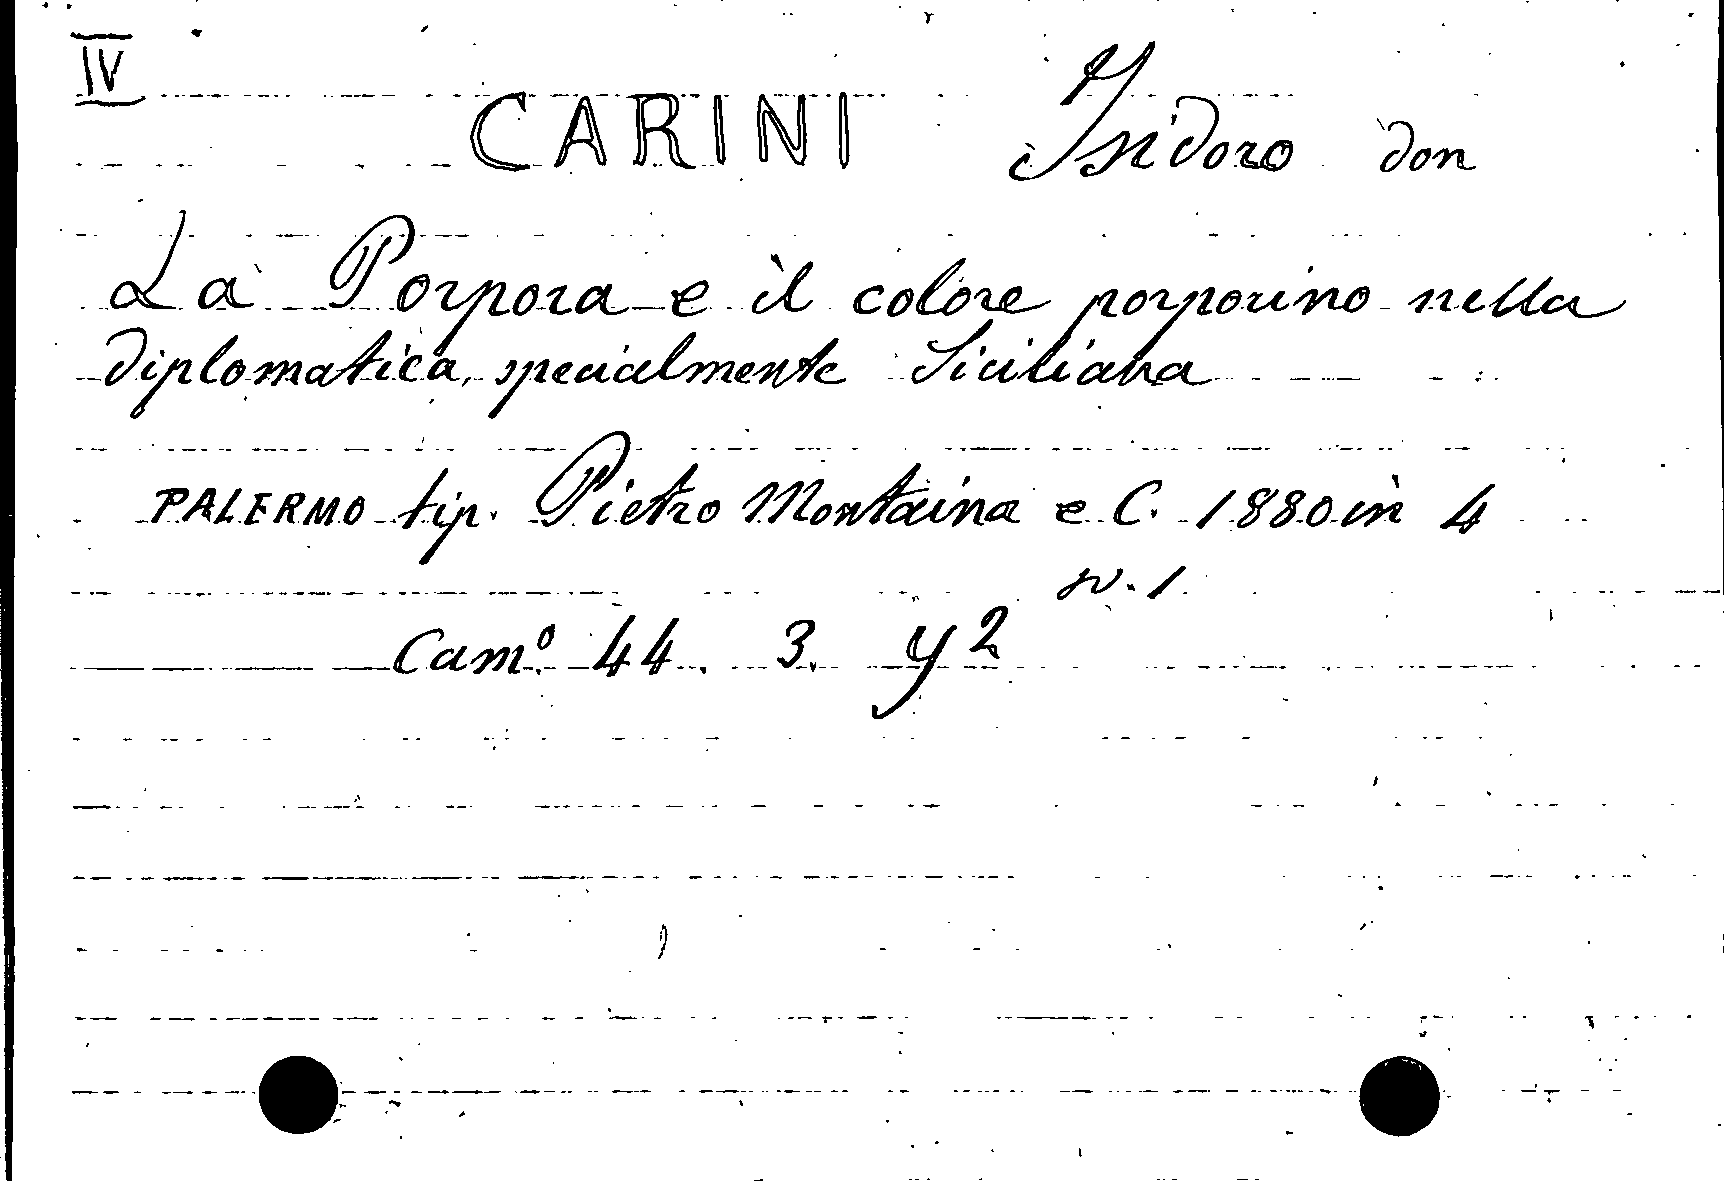 IV
CARINI Isidoro don
La Porpora e il colore porporino nella
diplomatica, specialmente Siciliana
PALERMO tip. Pietro Montaina e C. 1880 in 4
v. 1
Cam.º 44. 3. y 2